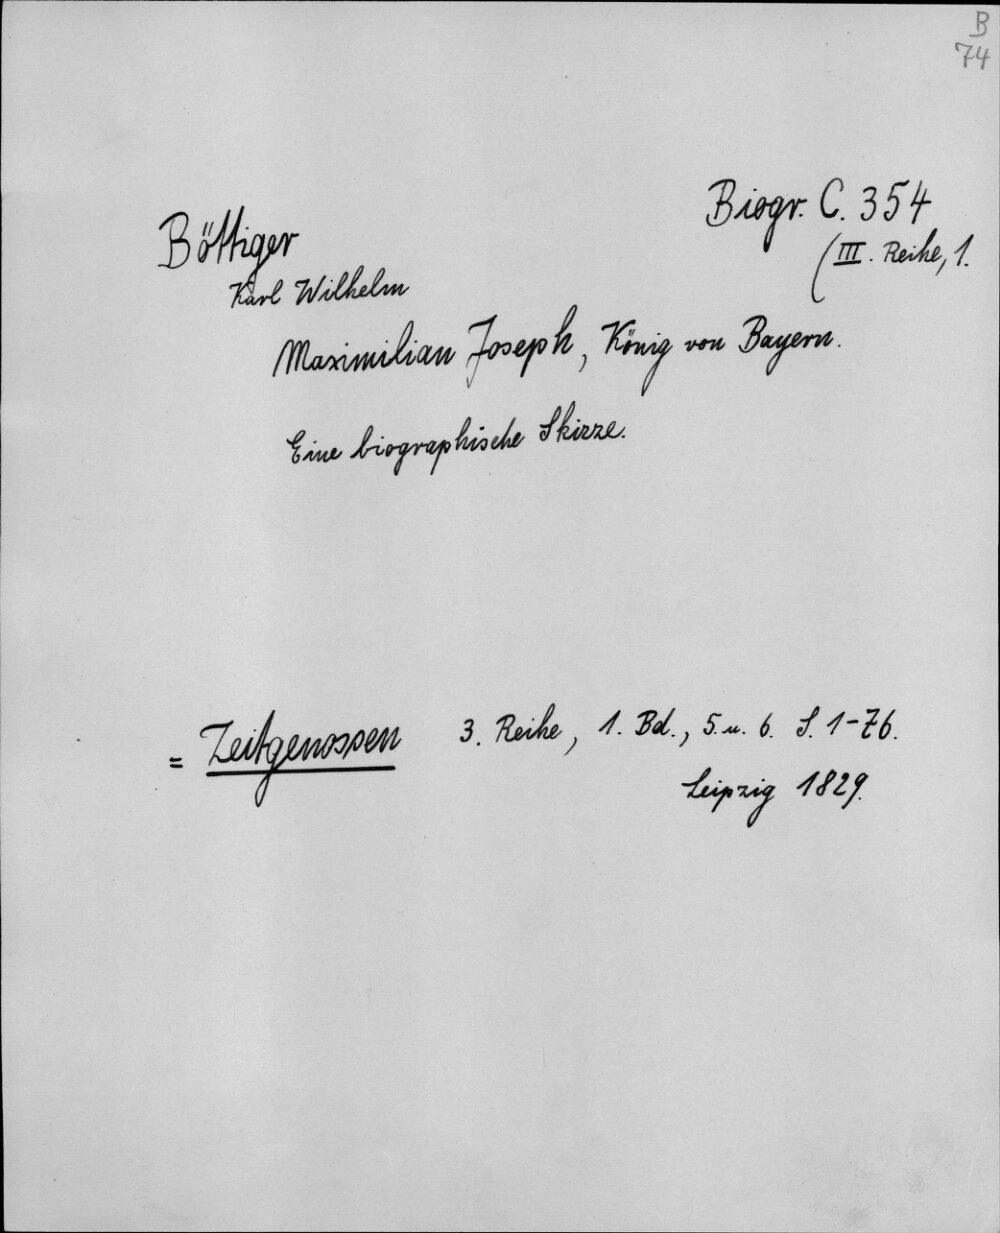 B
74
Biogr. C. 354
(III. Reihe, 1.
Böttiger
Karl Wilhelm
Maximilian Joseph, König von Bayern.
Eine biographische Skizze.
= Zeitgenossen 3. Reihe, 1. Bd., 5. u. 6. S. 1-76.
Leipzig 1829.